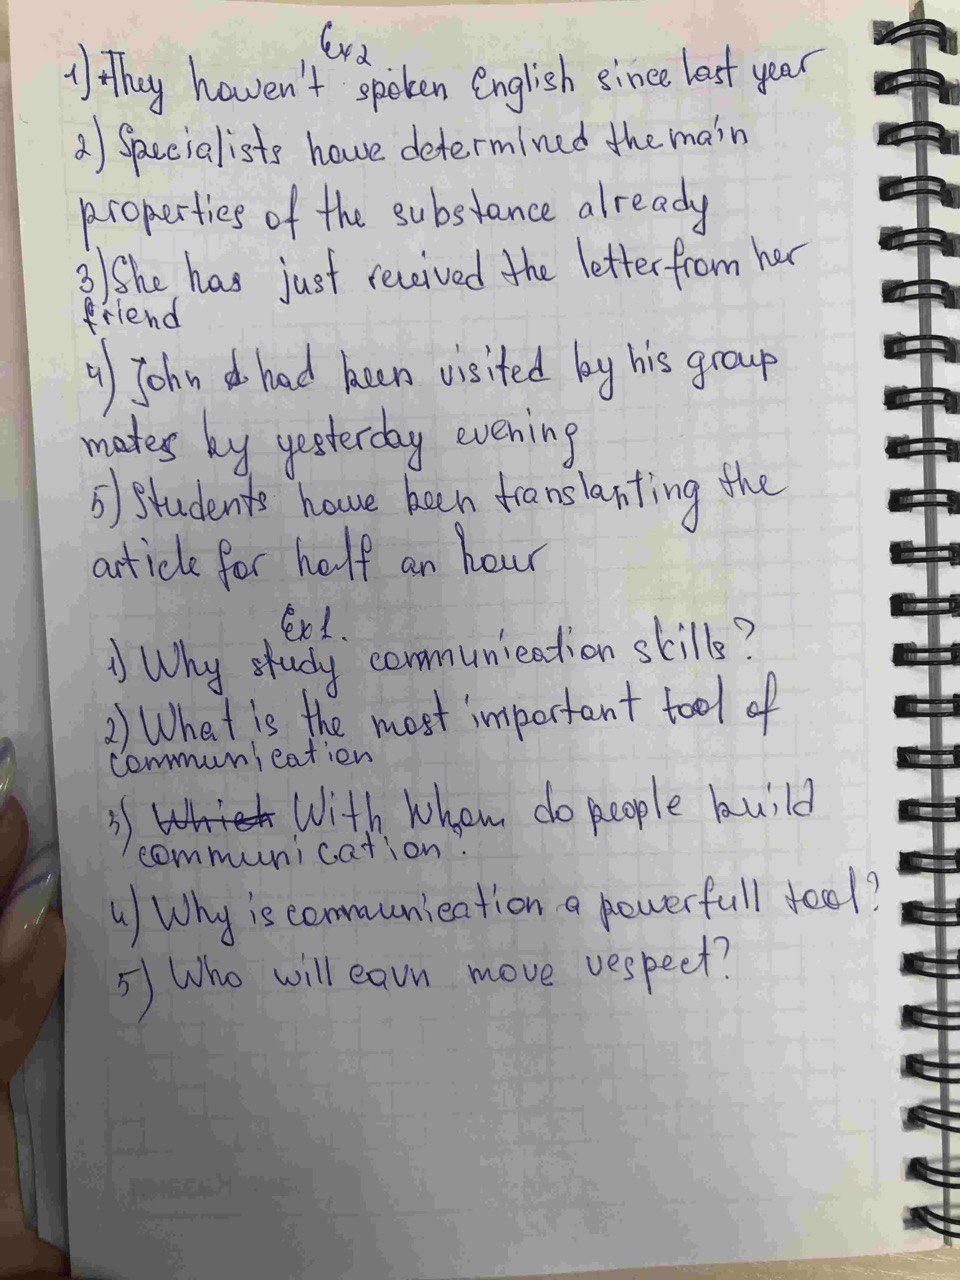 Ex2
1) They haven't spoken English since last year
2) Specialists have determined the main
properties of the substance already
3) She has just received the letter from her
friend
4) John had been visited by his group
mates by yesterday evening
5) Students have been translanting the
article for half an hour
Ex1.
1) Why study communication skills?
2) What is the most important tool of
communication
3) Which With Whom do people build
communication?
4) Why is communication a powerfull tool?
5) Who will earn more respect?